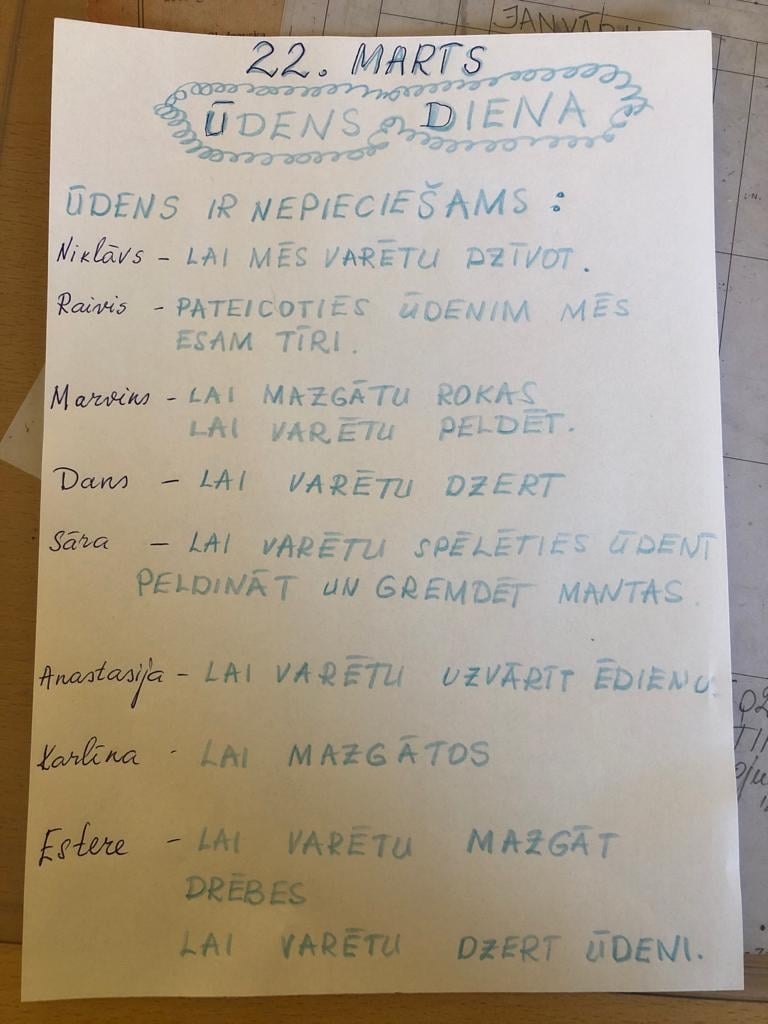 JANVĀR
22. MARTS
ŪDENS DIENA
ŪDENS IR NEPIECIEŠAMS :
Niklāvs - LAI MĒS VARĒTU DZĪVOT.
Raivis - PATEICOTIES ŪDENIM MĒS
ESAM TĪRI.
Marvins - LAI MAZGĀTU ROKAS
LAI VARĒTU PELDĒT.
Dans - LAI VARĒTU DZERT
Sāra - LAI VARĒTU SPĒLĒTIES ŪDENĪ
PELDINĀT UN GREMDĒT MANTAS.
Anastasija - LAI VARĒTU UZVĀRĪT ĒDIENU.
Karlīna - LAI MAZGĀTOS
Estere - LAI VARĒTU MAZGĀT
DRĒBES
LAI VARĒTU DZERT ŪDENI.